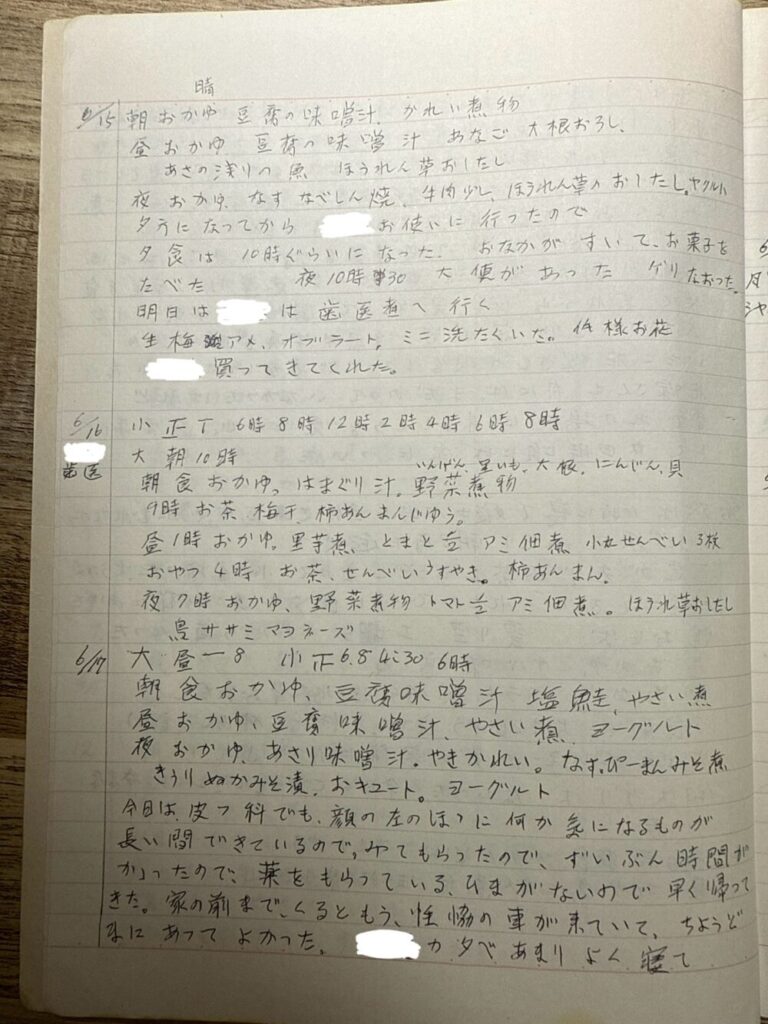 晴
6/15 朝 おかゆ 豆腐の味噌汁、かれい煮物
昼 おかゆ 豆腐の味噌汁 あなご 大根おろし、
あさの浅りの魚 ほうれん草おしたし
夜 おかゆ、なす なべしん焼、牛肉少し、ほうれん草のおしたし。ヤクルト
夕方になってから お使いに 行ったので
夕食は 10時ぐらいになった。 おなかが すいて、お菓子を
たべた 夜10時30 大便があった ゲリなおった。
明日は は 歯医者へ 行く
生梅 アメ、オブラート、ミニ洗たくいた。仏様お花
買ってきてくれた。
6/16 小 正T 6時 8時 12時 2時 4時 6時 8時
歯医 大 朝10時
いんげん、里いも、大根、にんじん、貝
朝食 おかゆ、はまぐり汁、野菜煮物
9時 お茶 梅干、柿あんまんじゆう。
昼1時 おかゆ、里芋煮、とまと アミ佃煮 小丸せんべい3枚
おやつ 4時 お茶、せんべいうすやき。 柿あんまん、
夜7時 おかゆ、野菜煮物 トマト アミ佃煮。ほうれ草おしたし
鳥ササミマヨネーズ
6/17 大 昼一8 小 正 6.8 4:30 6時
朝食 おかゆ、豆腐味噌汁 塩鮭、やさい煮
昼 おかゆ、豆腐味噌汁、やさい煮、ヨーグルト
夜 おかゆ、あさり味噌汁、やきかれい。なす、ぴーまんみそ煮
きうり ぬかみそ漬、おキュート。ヨーグルト
今日は、皮フ科でも、顔の左のほゝに 何か 気になるものが
長い間できているので、みてもらったので、ずいぶん時間が
かゝったので、薬をもらっている、ひまがないので 早く帰って
きた。家の前まで、くるともう、生協の車が来ていて、ちようど
まにあって よかった。 が夕べあまり よく 寝て